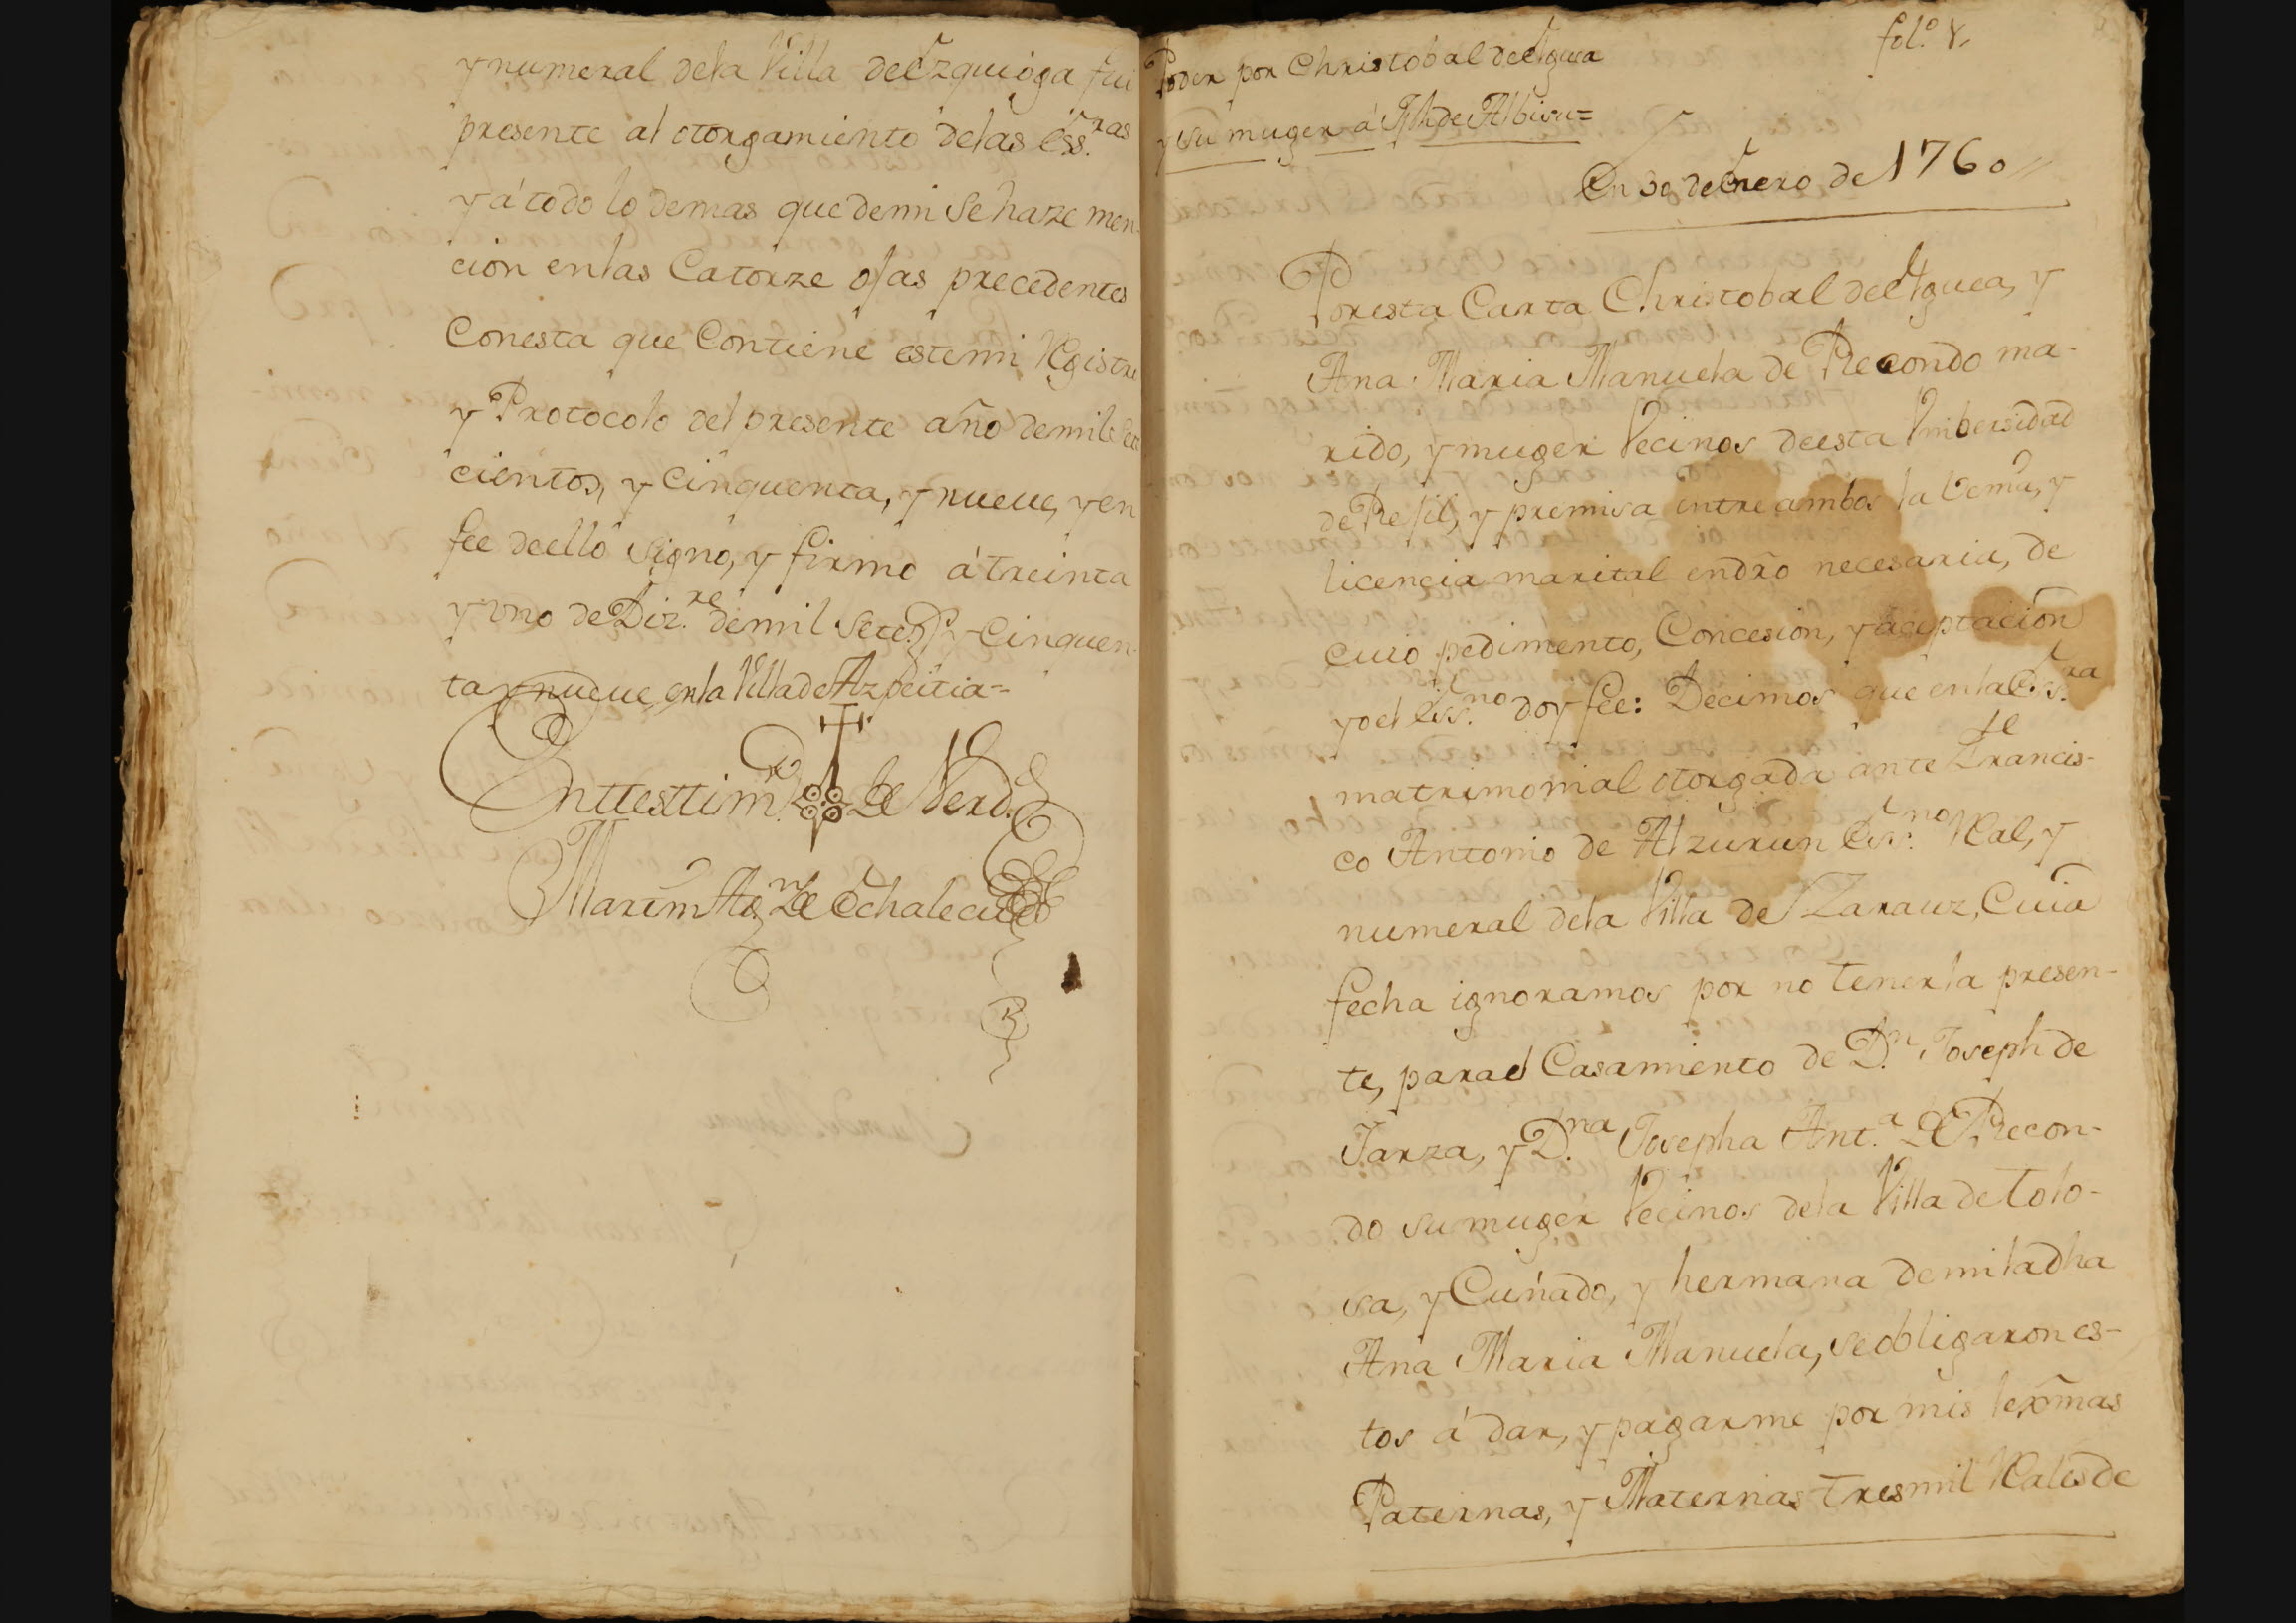 y numeral dela Villa de Ezquioga fui
presente al otorgamiento delas Ess.ras
y á todo lo demas que demi se haze men-
cion enlas Catorze ojas precedentes
Conesta que Contiene estemi Rgistro
y Protocolo del presente año demil sete
cientos, y Cinquenta, y nueve, y en
fee deello signo, y firmo á treinta
y uno de Diz.re demil setez.s y Cinquen-
ta y nueve, enla Villa de Azpeitia=
En ttesttim.o de Verd.
Martin Ag.n de Echalecu
fol.o 8,
Poder por Christobal de Eguea
y su muger á Jph de Albisu=
En 30 de Enero de 1760
Poresta Carta Christobal de Eguea, y
Ana Maria Manuela de Recondo ma-
rido, y muger Vecinos deesta Vnibersidad
de Rejil, y premisa entre ambos la Venia, y
licencia marital endrõ necesaria, de
cuio pedimento, Concesion, y aceptacion
yo el Ess.no doy fee: Decimos que enla Ess.ra
matrimonial otorgada ante Francis-
co Antonio de Alzuru Ess.no Real, y
numeral dela Villa de Zarauz, Cuia
fecha ignoramos por no tenerla presen-
te, parael Casamiento de D.n Joseph de
Jarza, y D.na Josepha Ant.a de Recon-
do su muger Vecinos dela Villa de Tolo-
sa, y Cuñado, y hermana demi la dha
Ana Maria Manuela, se obligaron es-
tos á dar, y pagarme por mis lexmas
Paternas, y Maternas tresmil Rales de